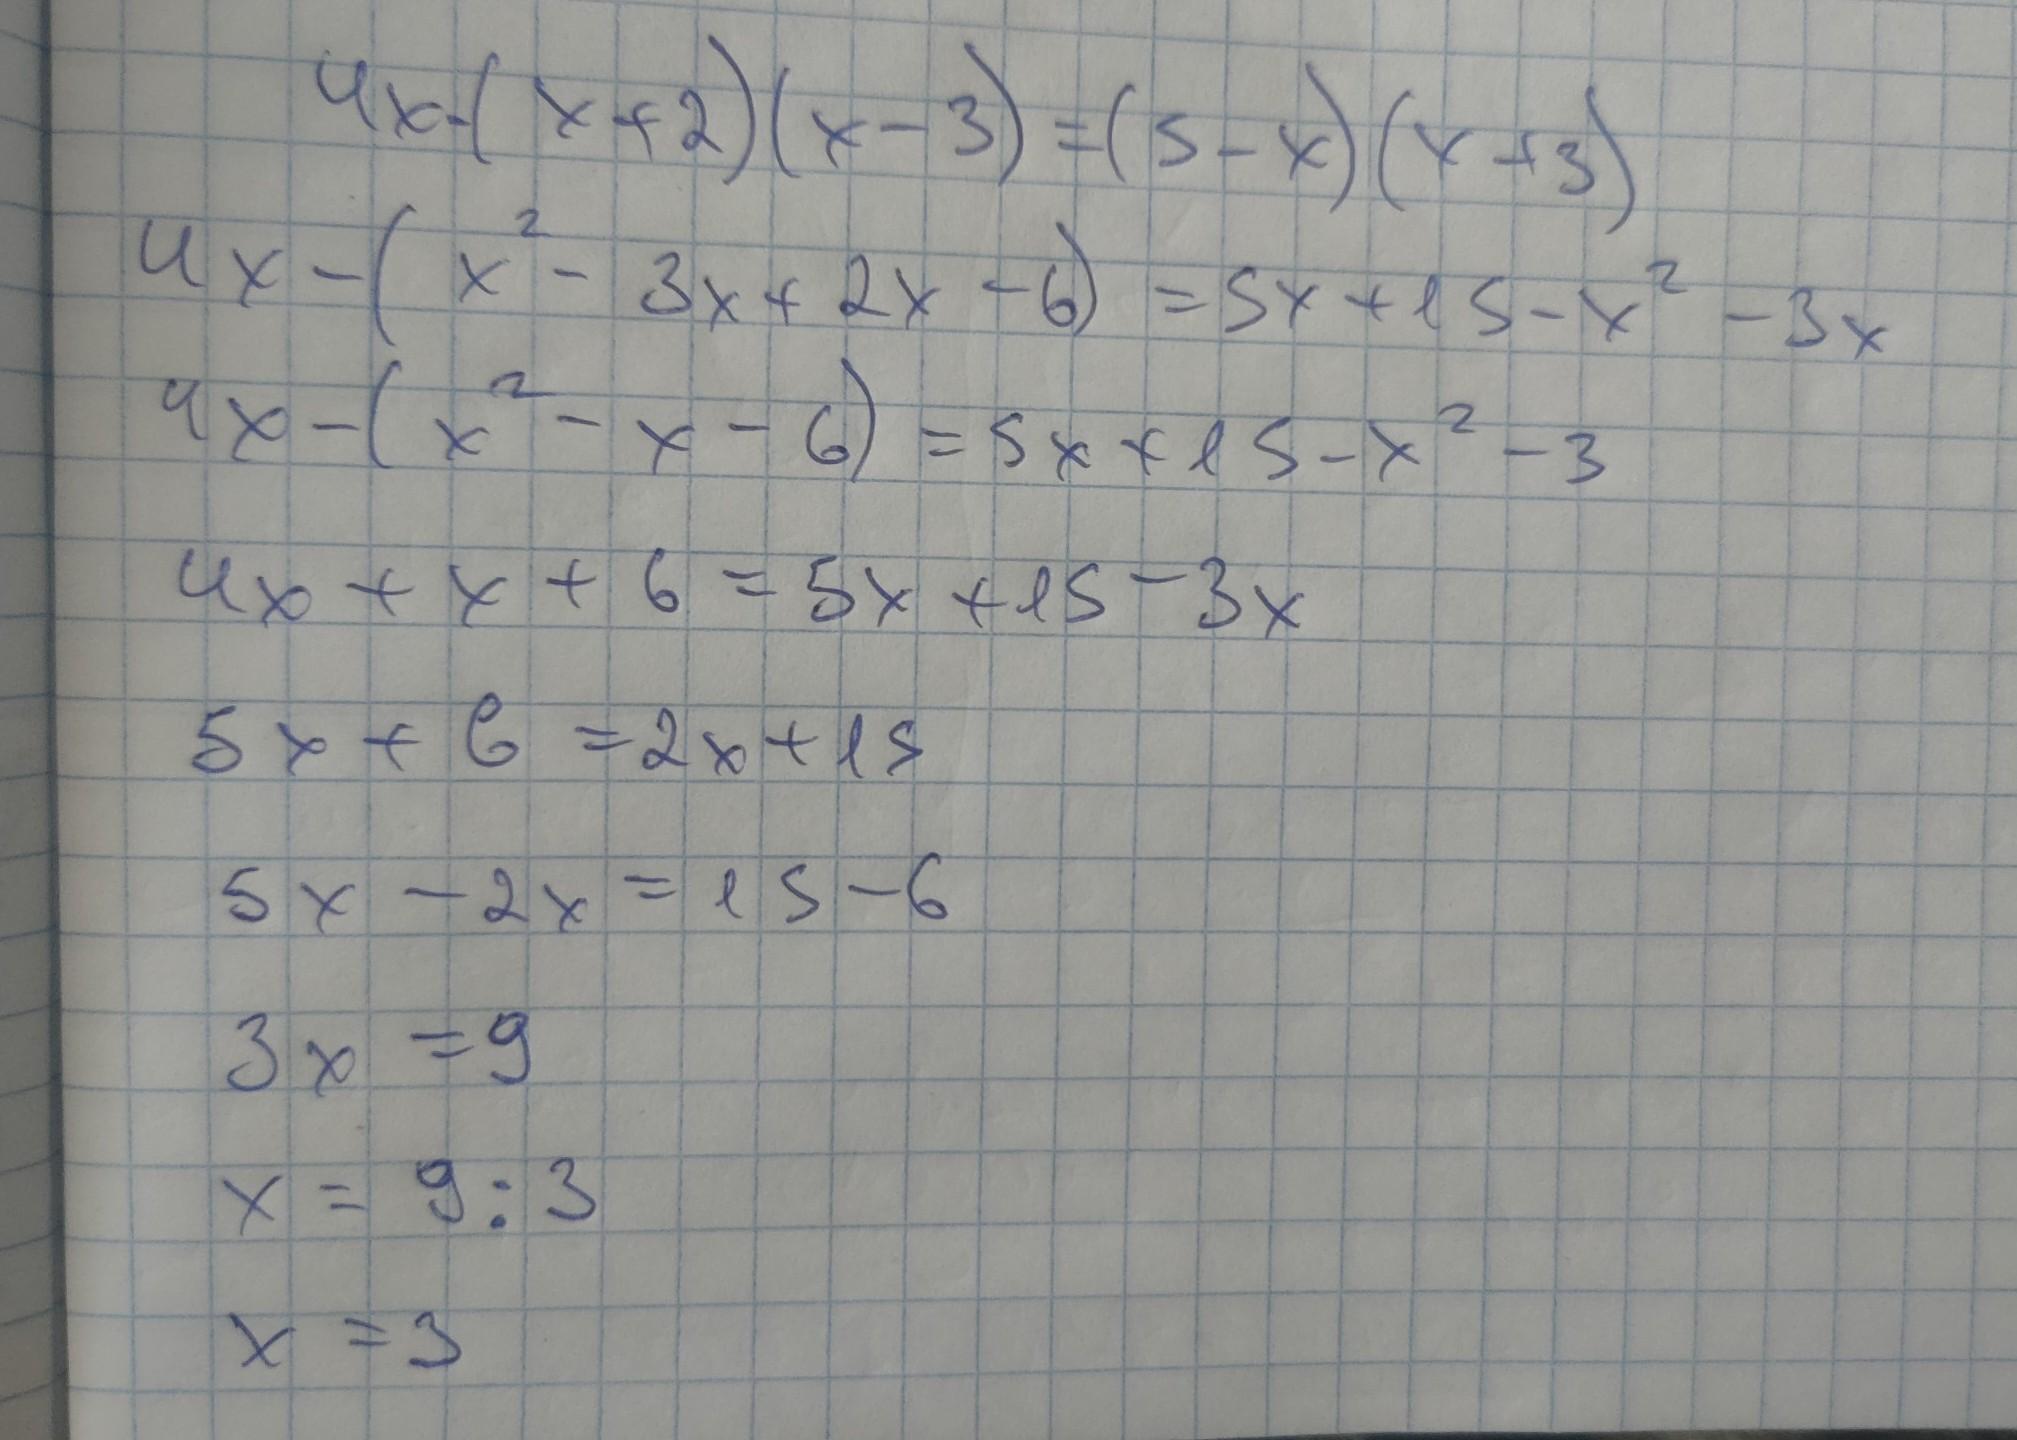 4x-(x+2)(x-3)=(5-x)(x+3)
4x-(x²-3x+2x-6)=5x+15-x²-3x
4x-(x²-x-6)=5x+15-x²-3
4x+x+6=5x+15-3x
5x+6=2x+15
5x-2x=15-6
3x=9
x=9:3
x=3